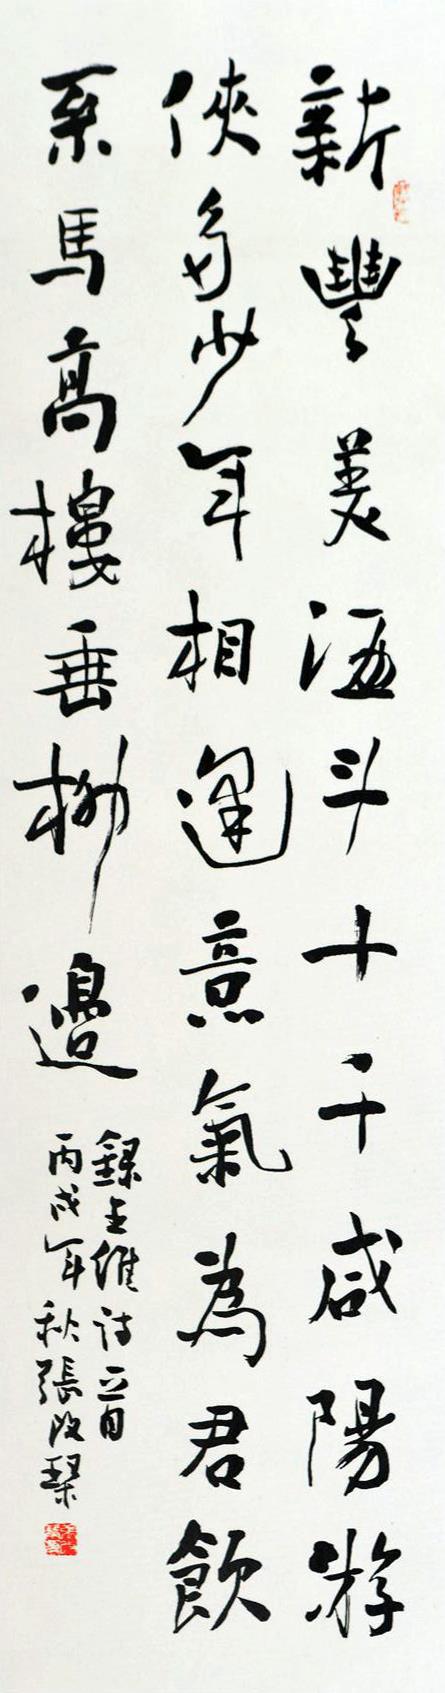 新豐美酒斗十千咸陽游
俠多少年相逢意氣為君飲
系馬高樓垂柳邊
錄王維詩一首
丙戌年秋張改琴